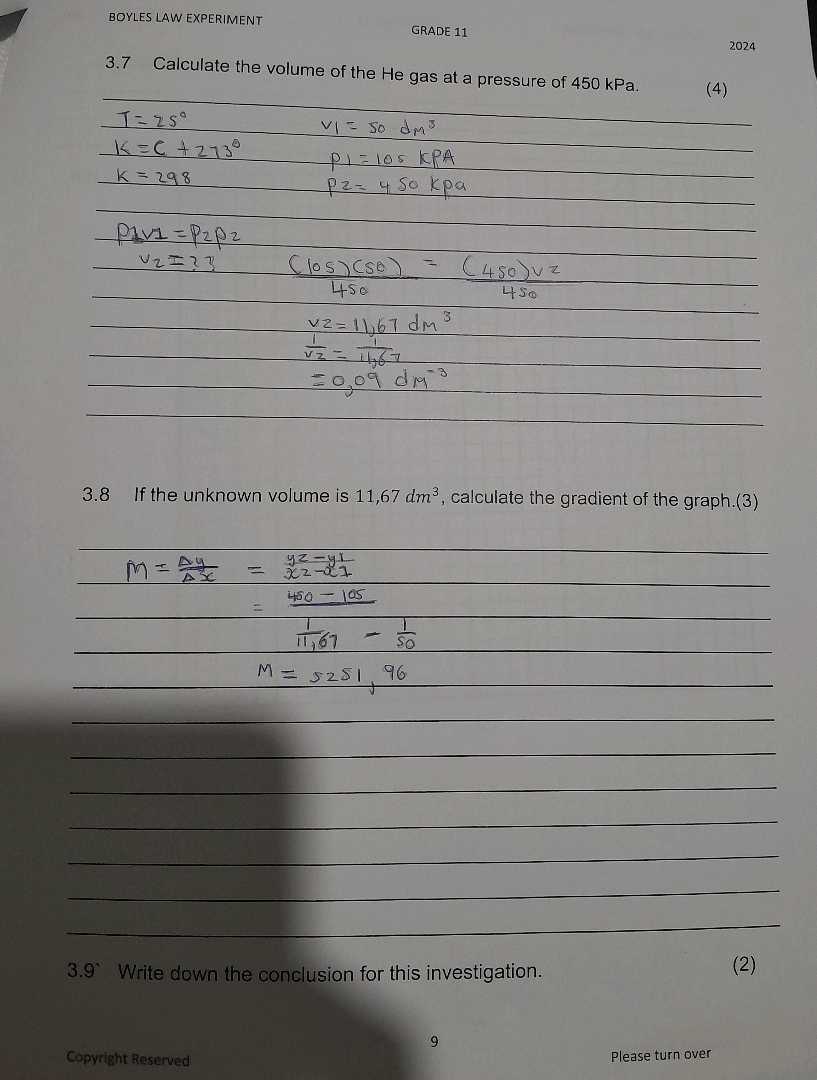 BOYLES LAW EXPERIMENT
GRADE 11
2024
3.7 Calculate the volume of the He gas at a pressure of 450 kPa. (4)
T = 25° V1 = 50 dm³
K = C + 273° P1 = 105 KPA
K = 298 P2 = 450 kpa
P1V1 = P2P2
V2 = ?? (105)(50)/450 = (450)V2/450
V2 = 11,67 dm³
1/V2 = 1/11,67
= 0,09 dm⁻³
3.8 If the unknown volume is 11,67 dm³, calculate the gradient of the graph.(3)
M = Δy/Δx = y2 - y1/x2 - x1
= 450 - 105
1/11,67 - 1/50
M = 5251,96
3.9` Write down the conclusion for this investigation. (2)
9
Copyright Reserved
Please turn over